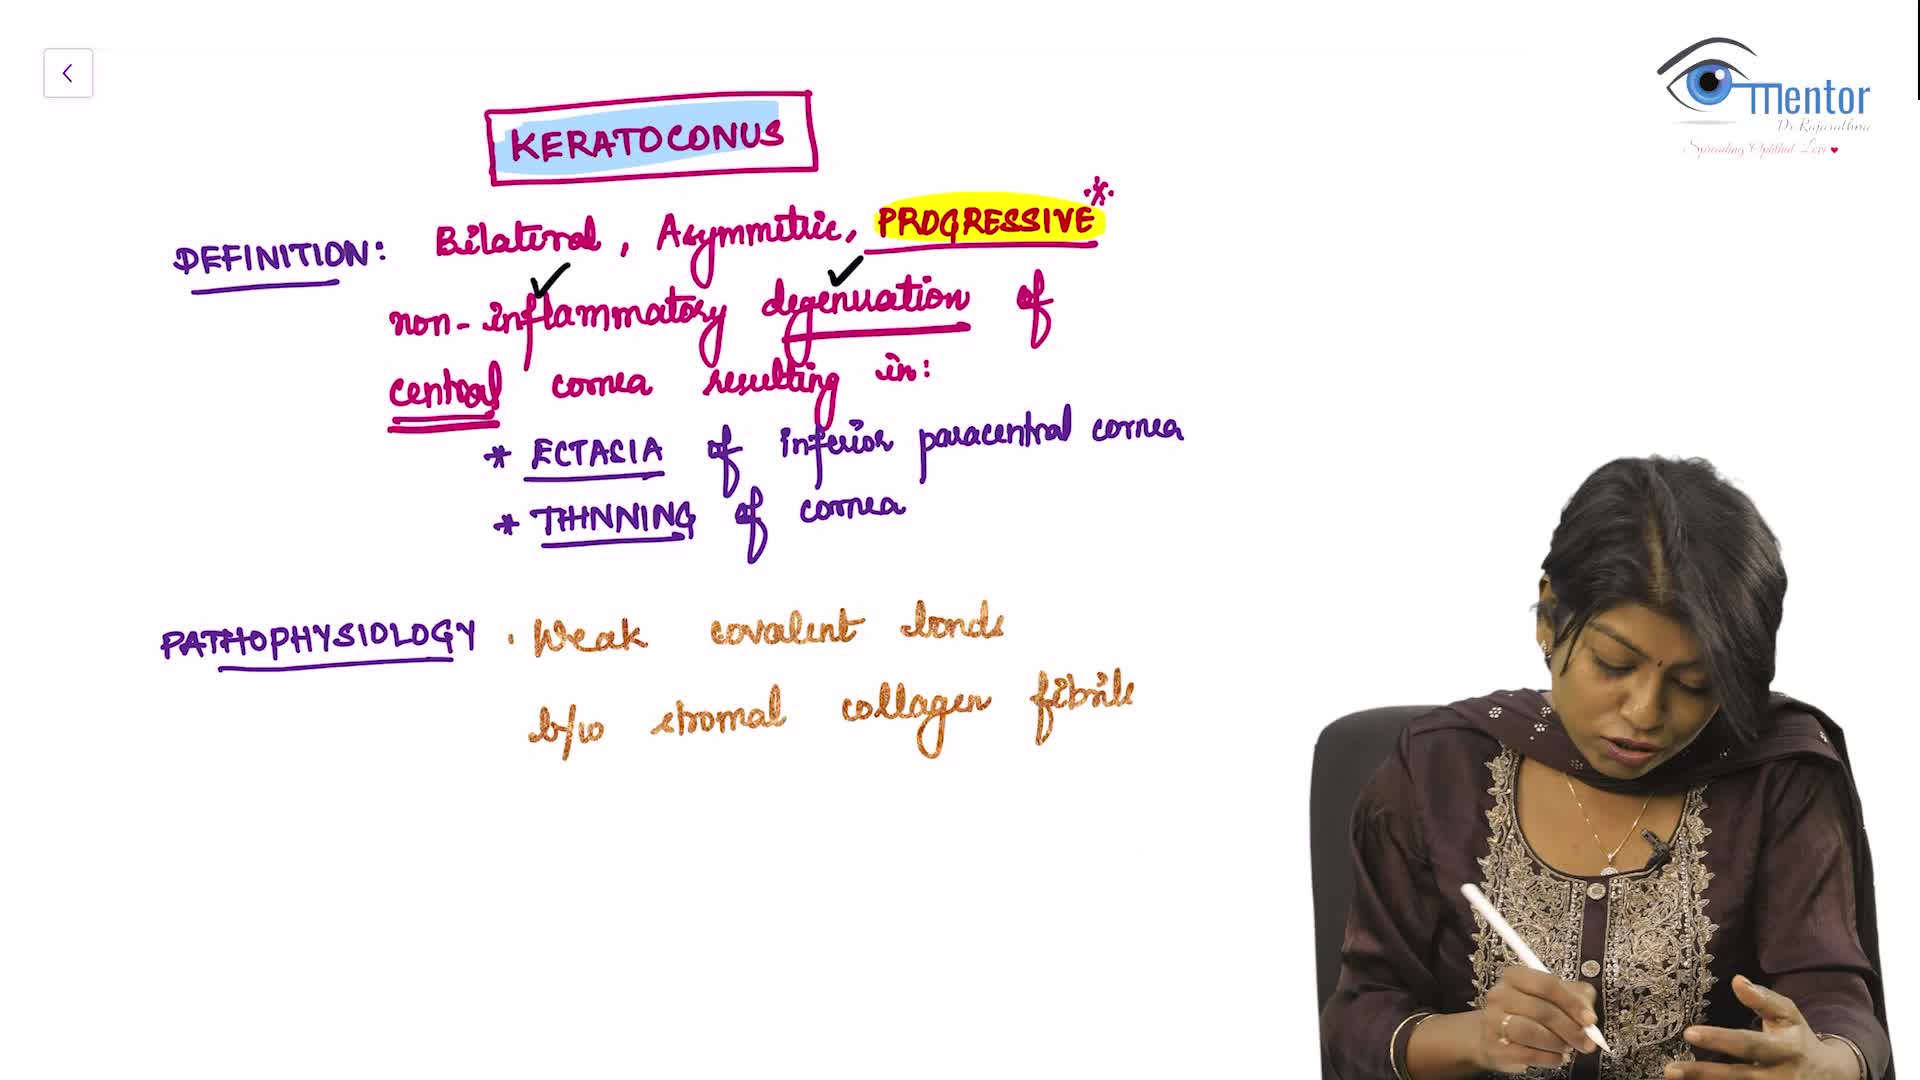 mentor
Dr Rajarathna
Spreading Ophthal Love
KERATOCONUS
DEFINITION: Bilateral, Asymmetric, PROGRESSIVE*
non-inflammatory degenuation of
central cornea resulting in:
* ECTASIA of inferior paracentral cornea
* THINNING of cornea
PATHOPHYSIOLOGY . Weak covalent bonds
b/w stromal collagen fibrils